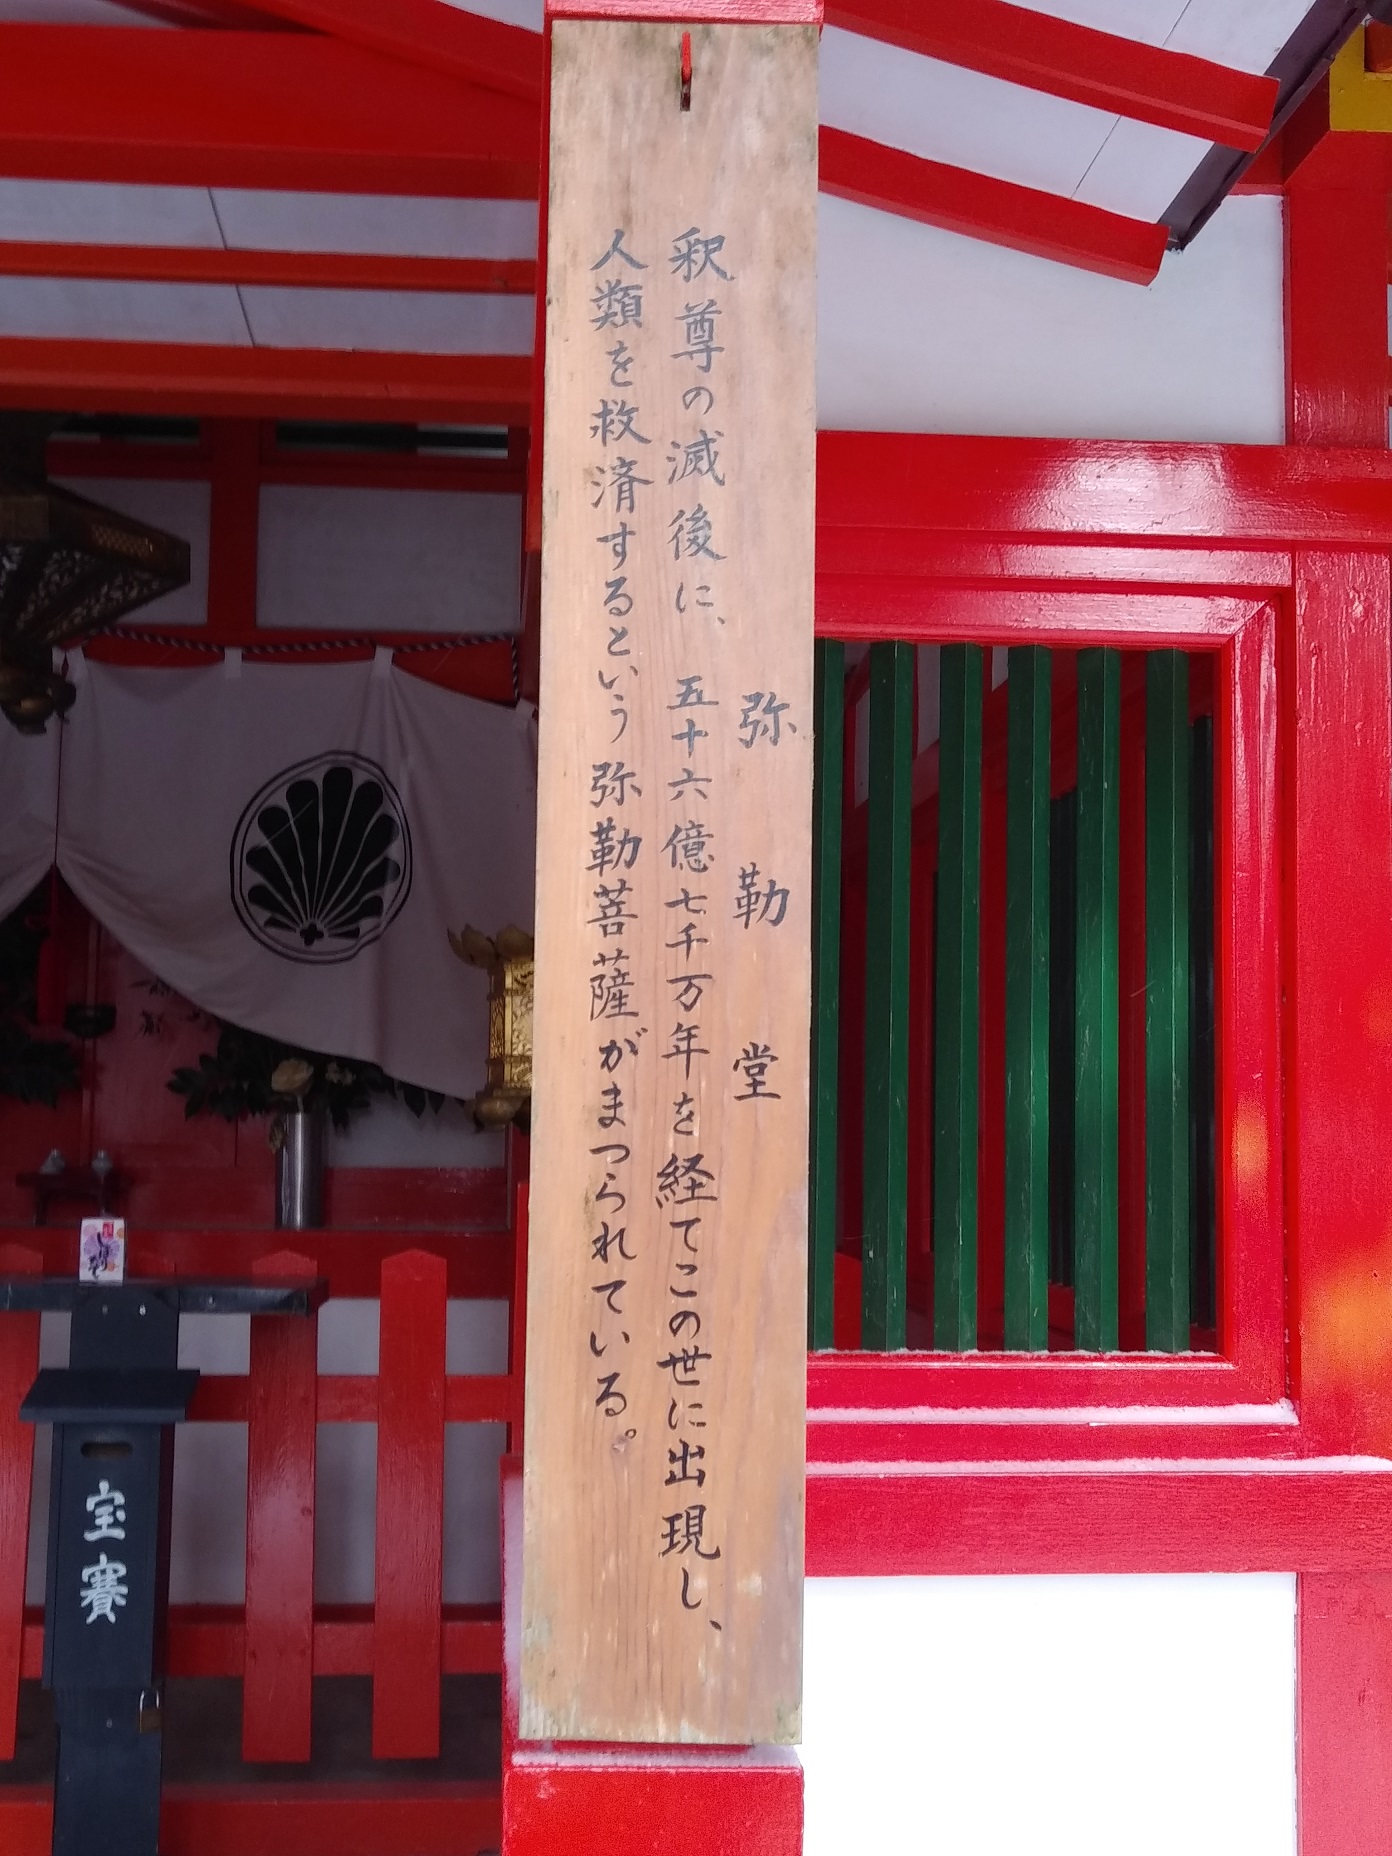 弥勒堂
釈尊の滅後に、五十六億七千万年を経てこの世に出現し、
人類を救済するという弥勒菩薩がまつられている。
宝賽